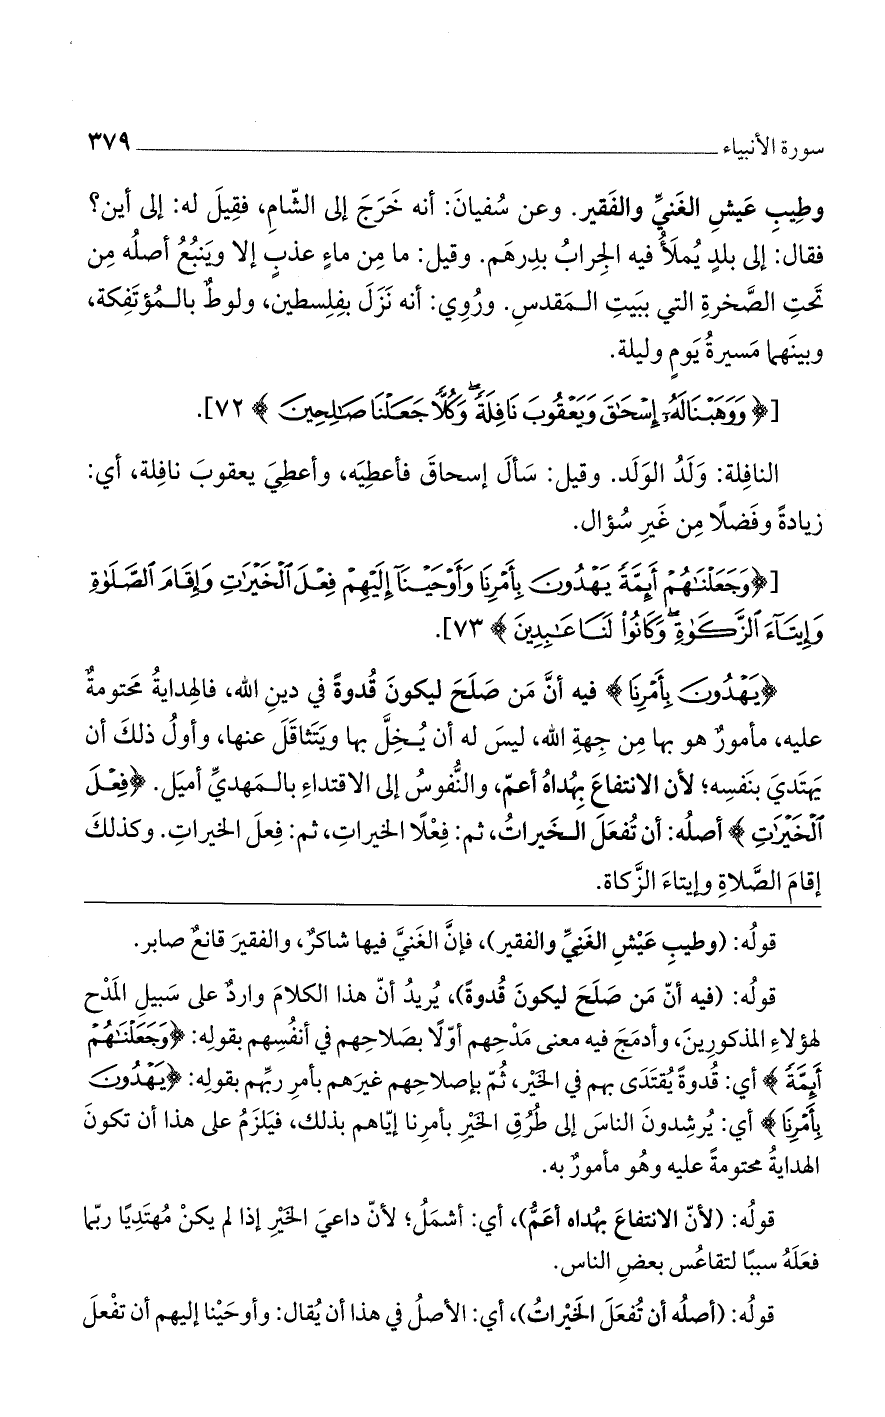 سورة الأنبياء ٣٧٩
وطِيبِ عَيشِ الغَنيِّ والفَقير. وعن سُفيانَ: أنه خَرَجَ إلى الشّامِ، فقِيلَ له: إلى أين؟
فقال: إلى بلدٍ يُملَأُ فيه الجِرابُ بدِرهَم. وقيل: ما مِن ماءٍ عذبٍ إلا ويَنبُعُ أصلُه مِن
تَحتِ الصَّخرةِ التي ببَيتِ المَقدسِ. ورُوِي: أنه نَزَلَ بفِلِسطين، ولوطٌ بالمُؤتَفِكة،
وبينَهما مَسيرةُ يَومٍ وليلة.
[﴿ وَوَهَبْنَا لَهُۥٓ إِسْحَٰقَ وَيَعْقُوبَ نَافِلَةً ۖ وَكُلًّا جَعَلْنَا صَٰلِحِينَ ﴾ ٧٢].
النافِلة: وَلَدُ الوَلَد. وقيل: سَألَ إسحاقَ فأعطِيَه، وأعطِيَ يعقوبَ نافِلة، أي:
زيادةً وفَضلًا مِن غَيرِ سُؤال.
[﴿وَجَعَلْنَٰهُمْ أَئِمَّةً يَهْدُونَ بِأَمْرِنَا وَأَوْحَيْنَآ إِلَيْهِمْ فِعْلَ ٱلْخَيْرَٰتِ وَإِقَامَ ٱلصَّلَوٰةِ
وَإِيتَآءَ ٱلزَّكَوٰةِ ۖ وَكَانُوا۟ لَنَا عَٰبِدِينَ ﴾ ٧٣].
﴿يَهْدُونَ بِأَمْرِنَا﴾ فيه أنَّ مَن صَلَحَ ليكونَ قُدوةً في دينِ الله، فالهِدايةُ مَحتومةٌ
عليه، مأمورٌ هو بها مِن جِهةِ الله، ليسَ له أن يُخِلَّ بها ويَتَثاقَلَ عنها، وأولُ ذلكَ أن
يَهتَديَ بنَفسِه؛ لأن الانتفاعَ بهُداهُ أعمّ، والنُّفوسُ إلى الاقتداءِ بالمَهديِّ أميَل. ﴿فِعْلَ
ٱلْخَيْرَٰتِ ﴾ أصلُه: أن تُفعَلَ الخَيراتُ، ثم: فِعْلًا الخيراتِ، ثم: فِعلَ الخيراتِ. وكذلكَ
إقامَ الصَّلاةِ وإيتاءَ الزَّكاة.
قولُه: (وطيبِ عَيْشِ الغَنِيِّ والفقير)، فإنَّ الغَنيَّ فيها شاكرٌ، والفقيرَ قانعٌ صابر.
قولُه: (فيه أنّ مَن صَلَحَ ليكونَ قُدوةً)، يُريدُ أنّ هذا الكلامَ واردٌ على سَبيلِ المَدْحِ
لهؤلاءِ المذكورِينَ، وأدمَجَ فيه معنى مَدْحِهم أوّلًا بصَلاحِهم في أنفُسِهم بقولِه: ﴿وَجَعَلْنَٰهُمْ
أَئِمَّةً ﴾ أي: قُدوةً يُقتَدَى بهم في الخَيْر، ثُمّ بإصلاحِهم غيرَهم بأمرِ ربِّهم بقولِه: ﴿يَهْدُونَ
بِأَمْرِنَا﴾ أي: يُرشِدونَ الناسَ إلى طُرُقِ الخَيْرِ بأمرِنا إيّاهم بذلك، فيَلزَمُ على هذا أن تكونَ
الهدايةُ محتومةً عليه وهُو مأمورٌ به.
قولُه: (لأنّ الانتفاعَ بهُداه أعَمُّ)، أي: أشمَلُ؛ لأنّ داعيَ الخَيْرِ إذا لم يكنْ مُهتَدِيًا ربّما
فعَلَهُ سببًا لتقاعُسِ بعضِ الناس.
قولُه: (أصلُه أن تُفعَلَ الخَيْراتُ)، أي: الأصلُ في هذا أن يُقال: وأوحَيْنا إليهم أن تفْعلَ